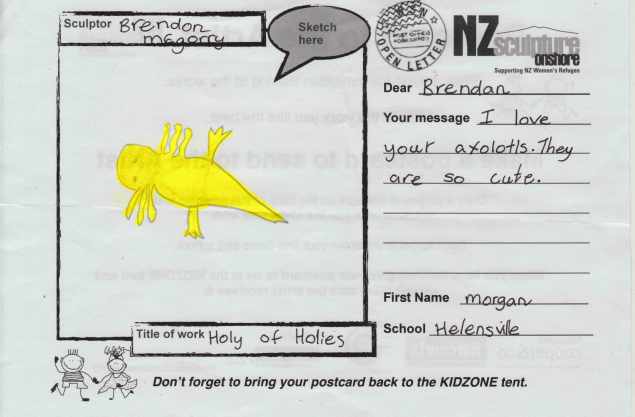 Sculptor Brendon
mcgorry
Sketch
here
OPEN LETTER
NZ sculpture
onshore
Supporting NZ Women's Refuges
Dear Brendan
Your message I love
your axolotls. They
are so cute.
First Name morgan
School Helensville
Title of work Holy of Holies
Don't forget to bring your postcard back to the KIDZONE tent.